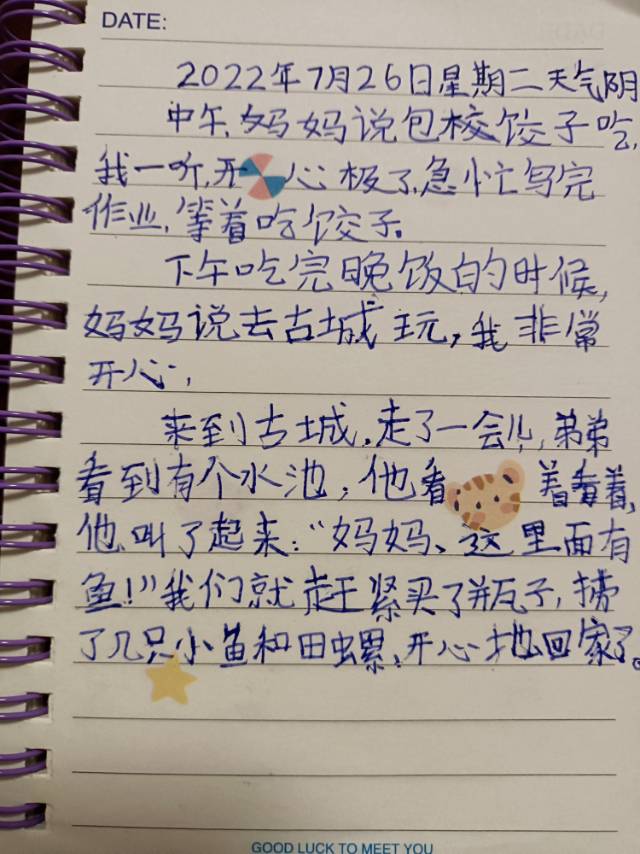 DATE:
2022年7月26日星期二天气阴
中午,妈妈说包校饺子吃,
我一听,开心极了,急忙写完
作业,等着吃饺子。
下午吃完晚饭的时候,
妈妈说去古城玩,我非常
开心,
来到古城,走了一会儿,弟弟
看到有个水池,他看着看着,
他叫了起来:“妈妈、这里面有
鱼!”我们就赶紧买了瓶子,捞
了几只小鱼和田螺,开心地回家了。
GOOD LUCK TO MEET YOU